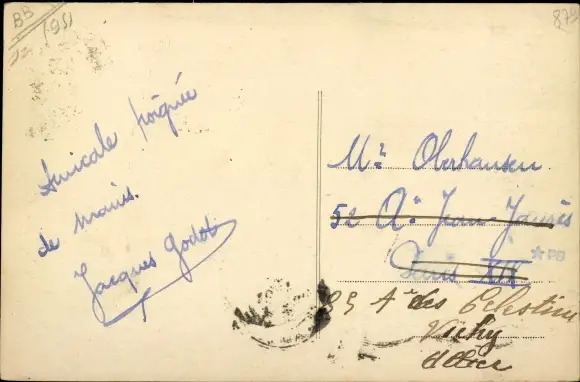 BB
1951
879
Amicale poignée
de mains.
Jacques Godot
Mr. Oberhausen
52 Ae Jean-Jaurès
Paris XII
PB
95 A des Celestins
Vichy
Allier